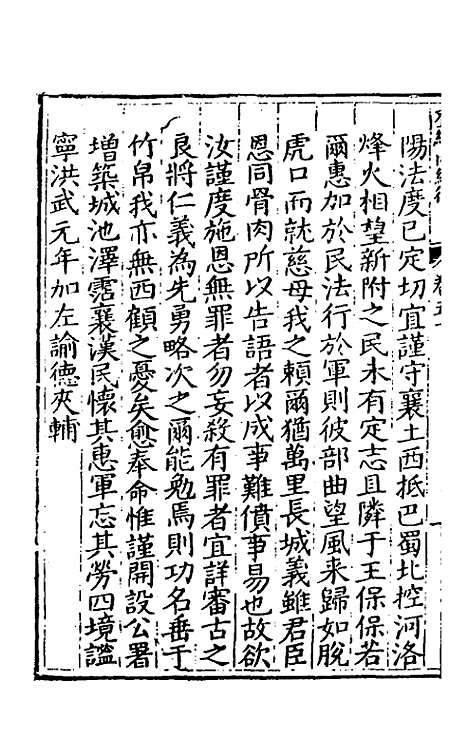 陽法度已定切宜謹守襄土西抵巴蜀北控河洛
烽火相望新附之民未有定志且隣于王保保若
爾惠加於民法行於軍則彼部曲望風来歸如脫
虎口而就慈母我之賴爾猶萬里長城義雖君臣
恩同骨肉所以告語者以成事難僨事易也故欲
汝謹度施恩無罪者勿妄殺有罪者宜詳審古之
良將仁義為先勇略次之爾能勉焉則功名垂于
竹帛我亦無西顧之憂矣愈奉命惟謹開設公署
增築城池澤霑襄漢民懷其惠軍忘其勞四境謐
寧洪武元年加左諭德夾輔